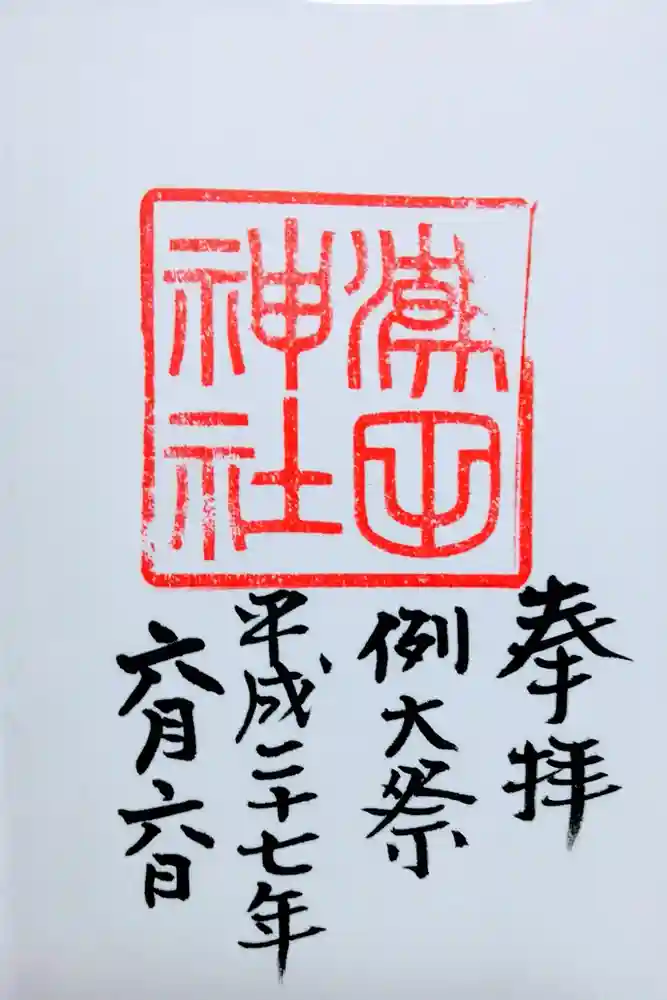 神社
奉拝
例大祭
平成二十七年
六月六日